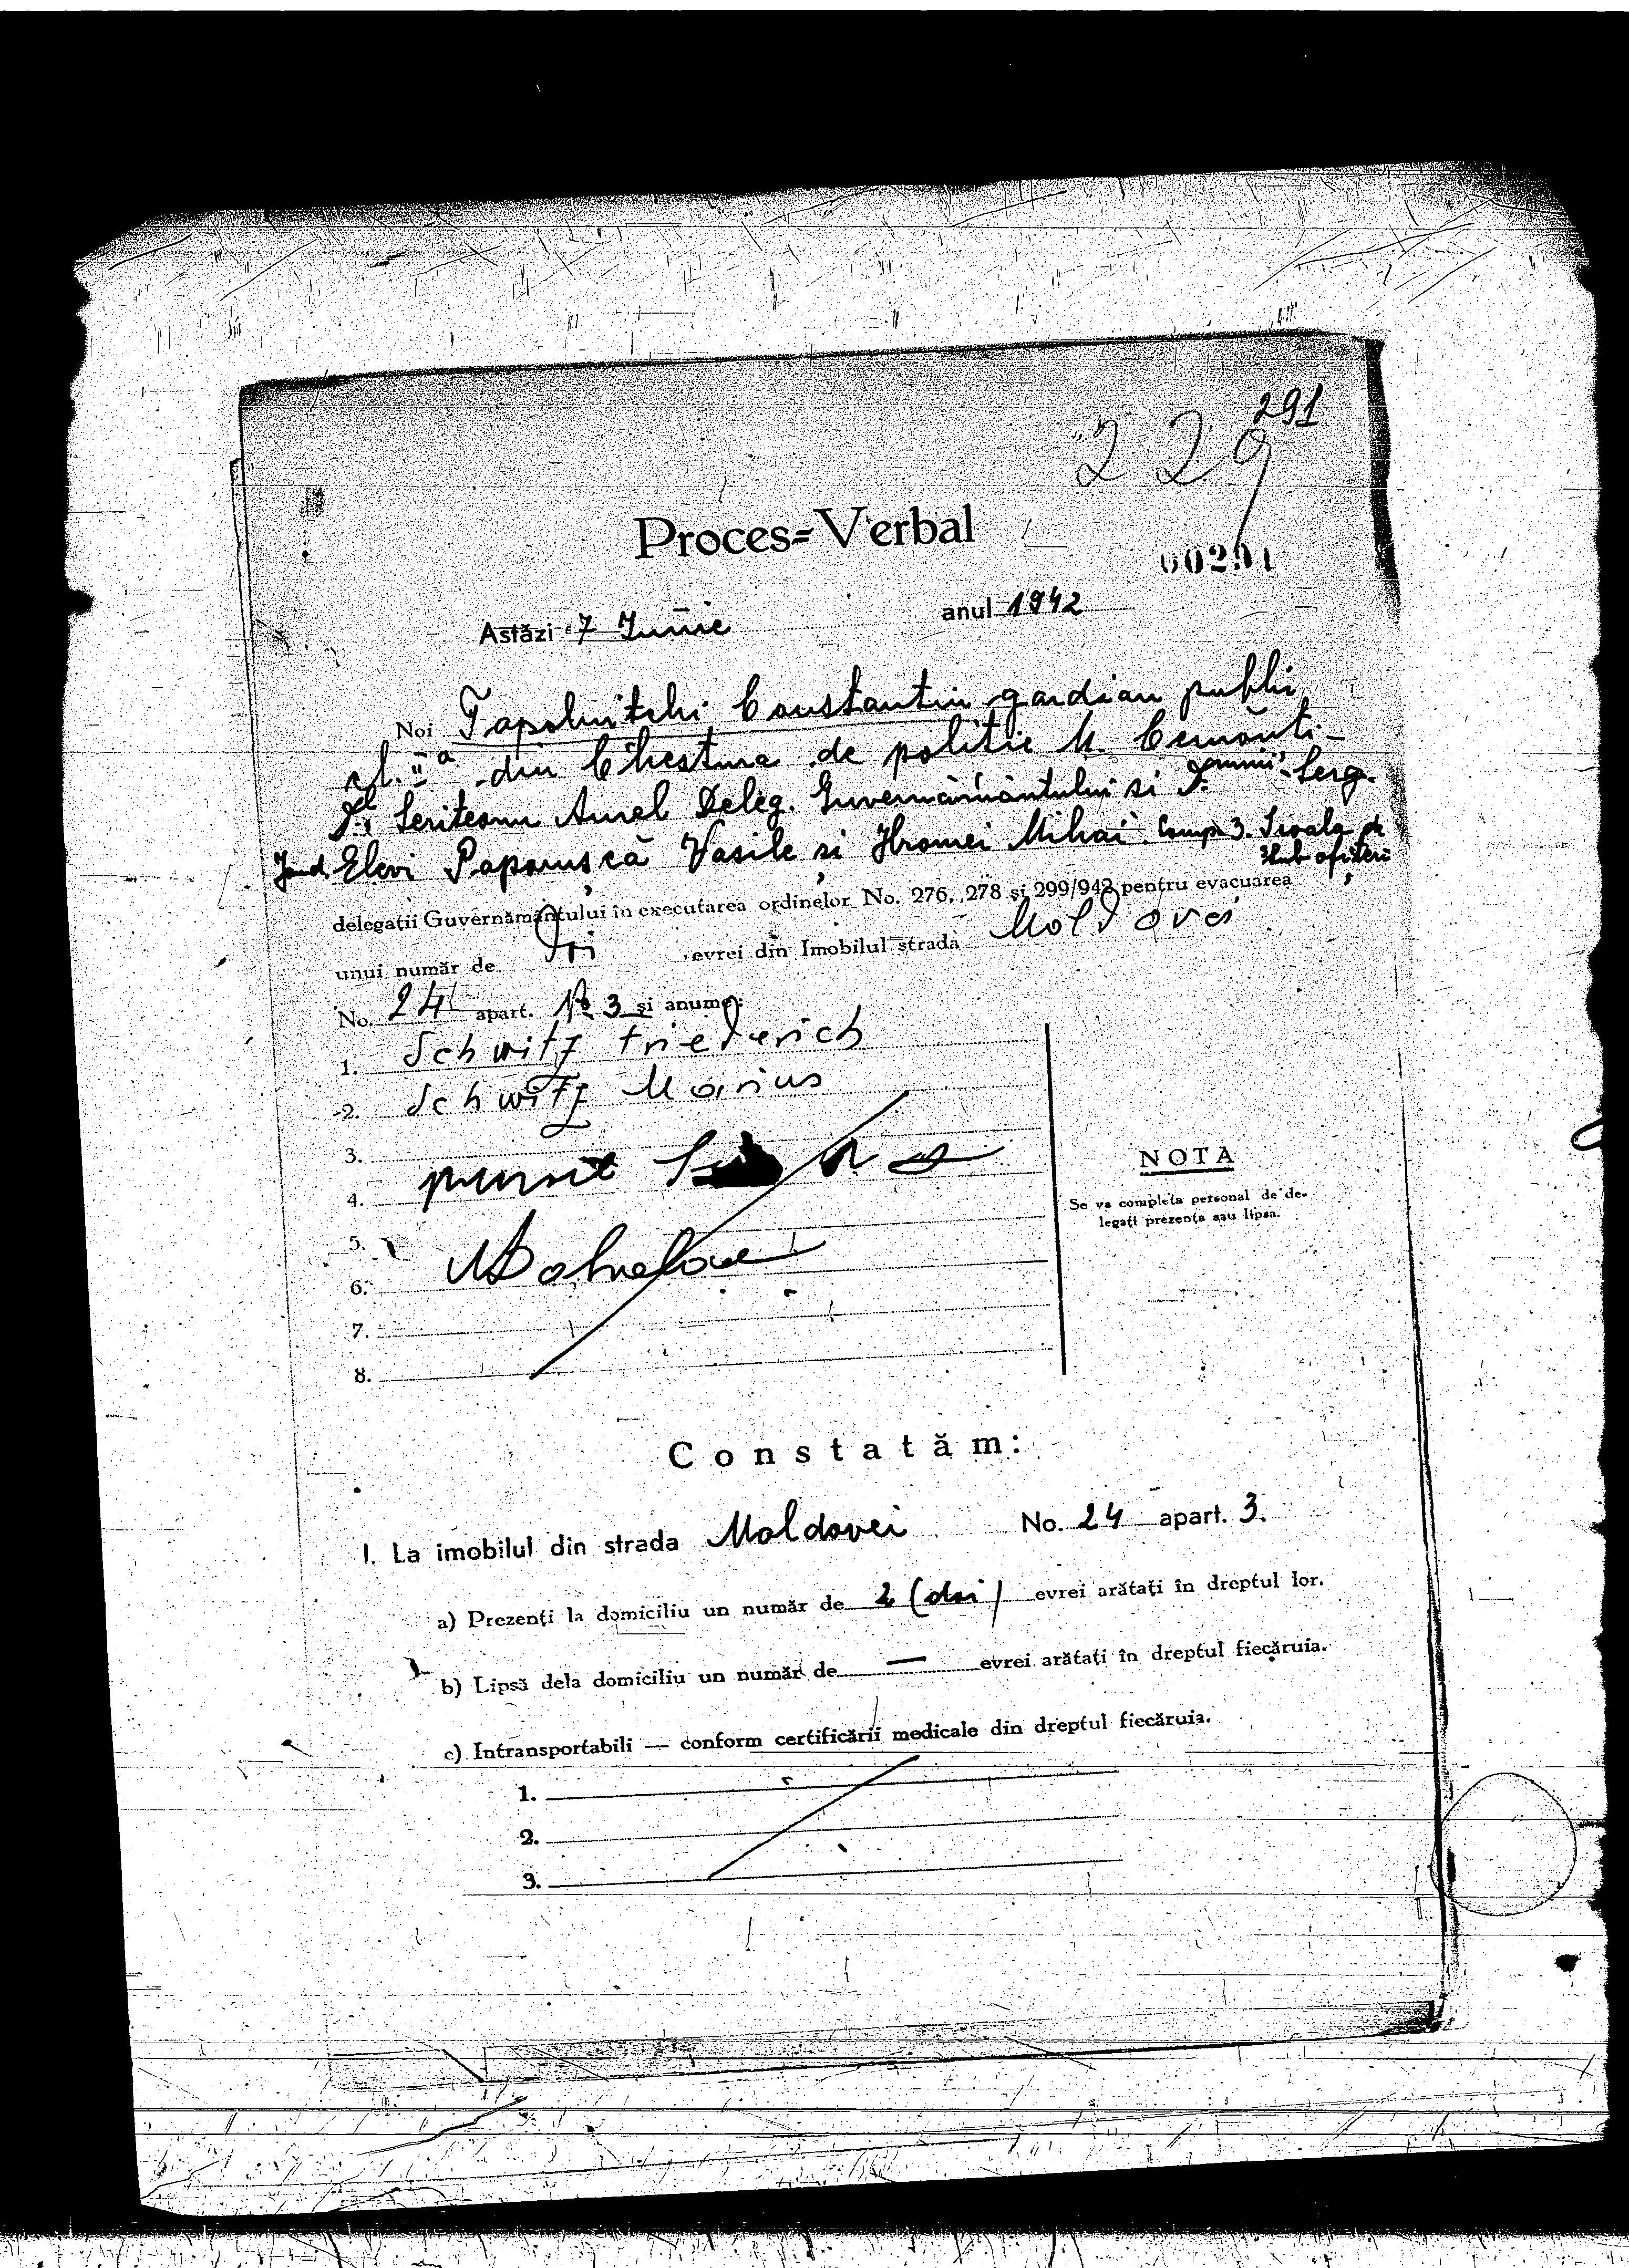 291
229
00291
Proces=Verbal
Astăzi 7 Iunie anul 1942
Noi Tapolnitchi Constantin gardian public
cl. II a din Chestura de politie M. Cernăuti-
Seriteanu Aurel Deleg. Guvernământului si Serg.
Jand. Elevi Paparușcă Vasile și Hromei Mihai Comp 3. Scoala de
Sub ofițeri
delegații Guvernământului în executarea ordinelor No. 276, 278 și 299/942 pentru evacuarea
unui număr de Doi evrei din Imobilul strada Moldovei
No. 24 apart. No 3 și anume:
1. Schwitz Friederich
2. Schwitz Marius
3.
4.
5.
6.
7.
8.
NOTA
Se va completa personal de de-
legați prezența sau lipsa.
Constatăm:
I. La imobilul din strada Moldovei No. 24 apart. 3.
a) Prezenți la domiciliu un număr de 2 (doi) evrei arătați în dreptul lor.
b) Lipsă dela domiciliu un număr de — evrei arătați în dreptul fiecăruia.
c) Intransportabili — conform certificării medicale din dreptul fiecăruia.
1.
2.
3.